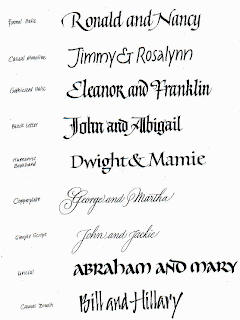 Formal Italic Ronald and Nancy
Casual Monoline Jimmy & Rosalynn
Gothicized Italic Eleanor and Franklin
Black Letter John and Abigail
Humanist Bookhand Dwight & Mamie
Copperplate George and Martha
Simple Script John and Jackie
Uncial ABRAHAM AND MARY
Casual Brush Bill and Hillary